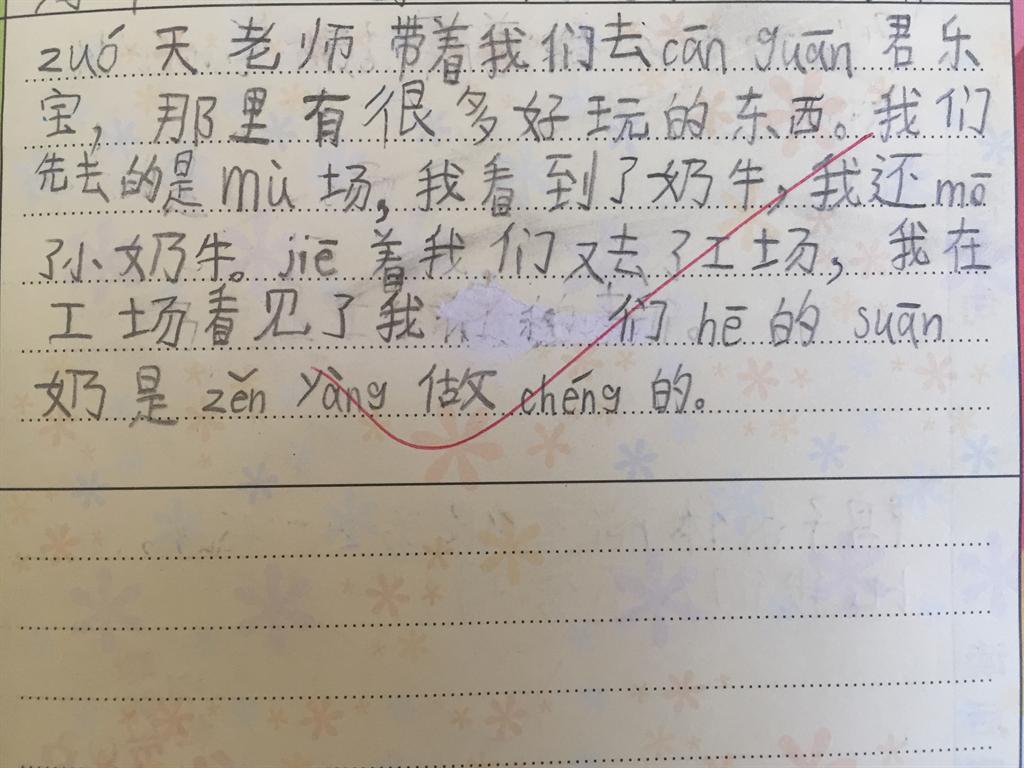 zuó天老师带着我们去cān guān君乐
宝，那里有很多好玩的东西。我们
先去的是mù场，我看到了奶牛，我还mō
了小奶牛。jiē着我们又去了工场，我在
工场看见了我们hē的suān
奶是zěn yàng做chéng的。